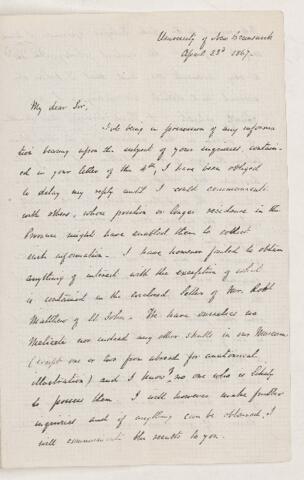 University of New Brunswick
April 23d 1867.
My dear Sir,
Not being in possession of any informa
tion bearing upon the subject of your inquiries, contain-
ed in your letter of the 4th, I have been obliged
to delay my reply until I could communicate
with others, whose position or longer residence in the
Province might have enabled them to collect
such information. I have however failed to obtain
anything of interest with the exception of what
is contained in the enclosed letter of Mr. Robt
Matthew of St John. We have ourselves no
Melicete nor indeed any other skulls in our Museum
(except one or two from abroad for anatomical
illustration) and I know no one who is likely
to possess them. I will however make further
inquiries and if anything can be obtained, I
will communicate the results to you.